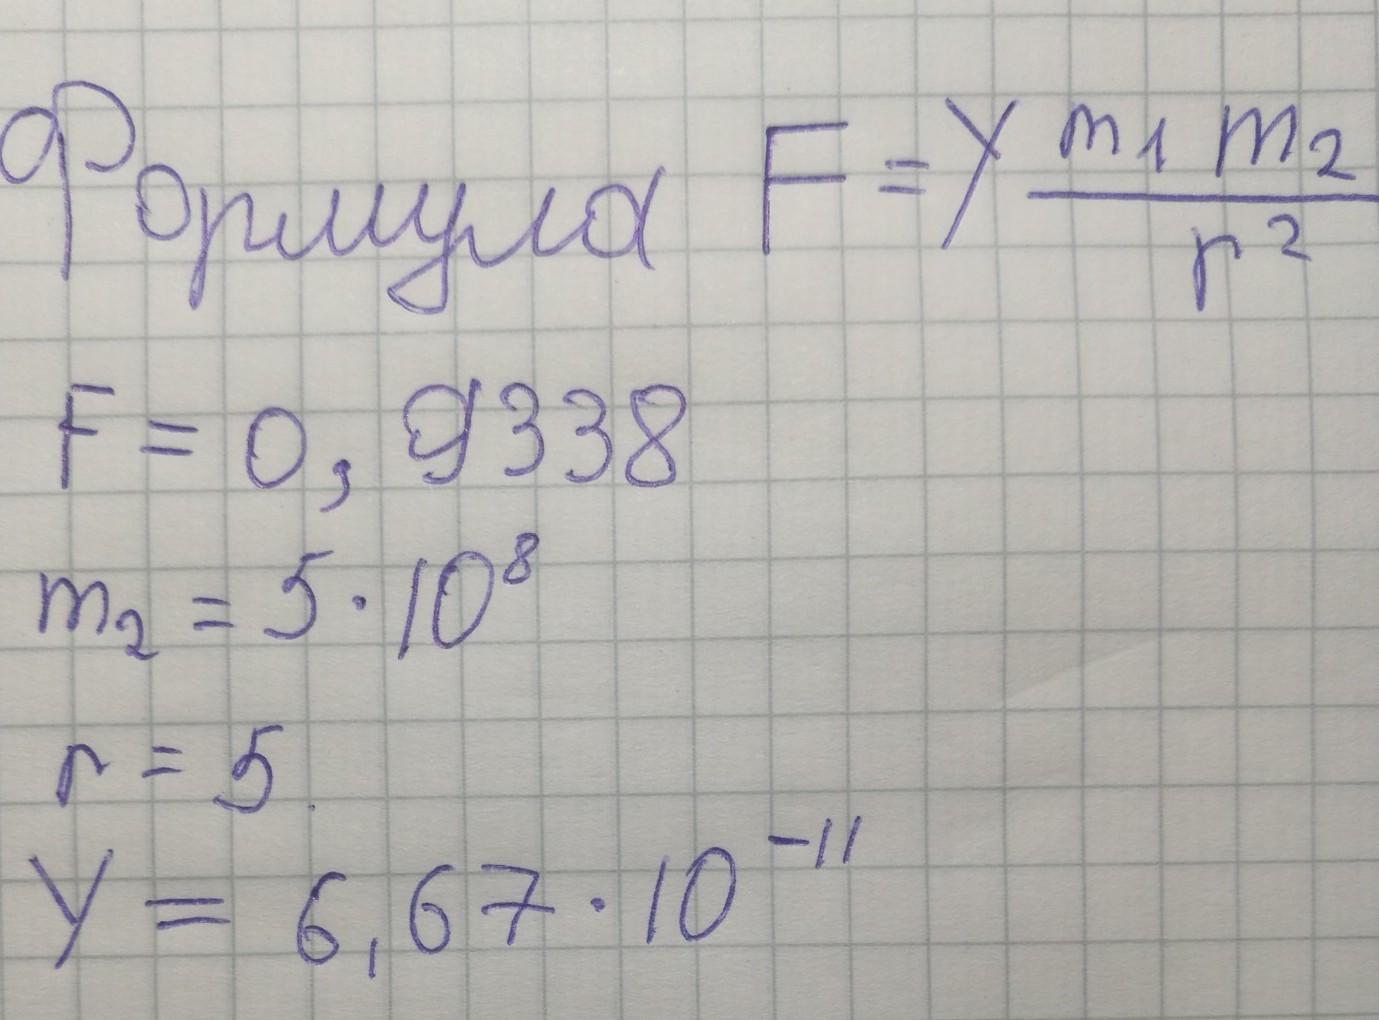 Формула F = γ m₁ m₂ / r²
F = 0,9338
m₂ = 5·10⁸
r = 5
γ = 6,67·10⁻¹¹